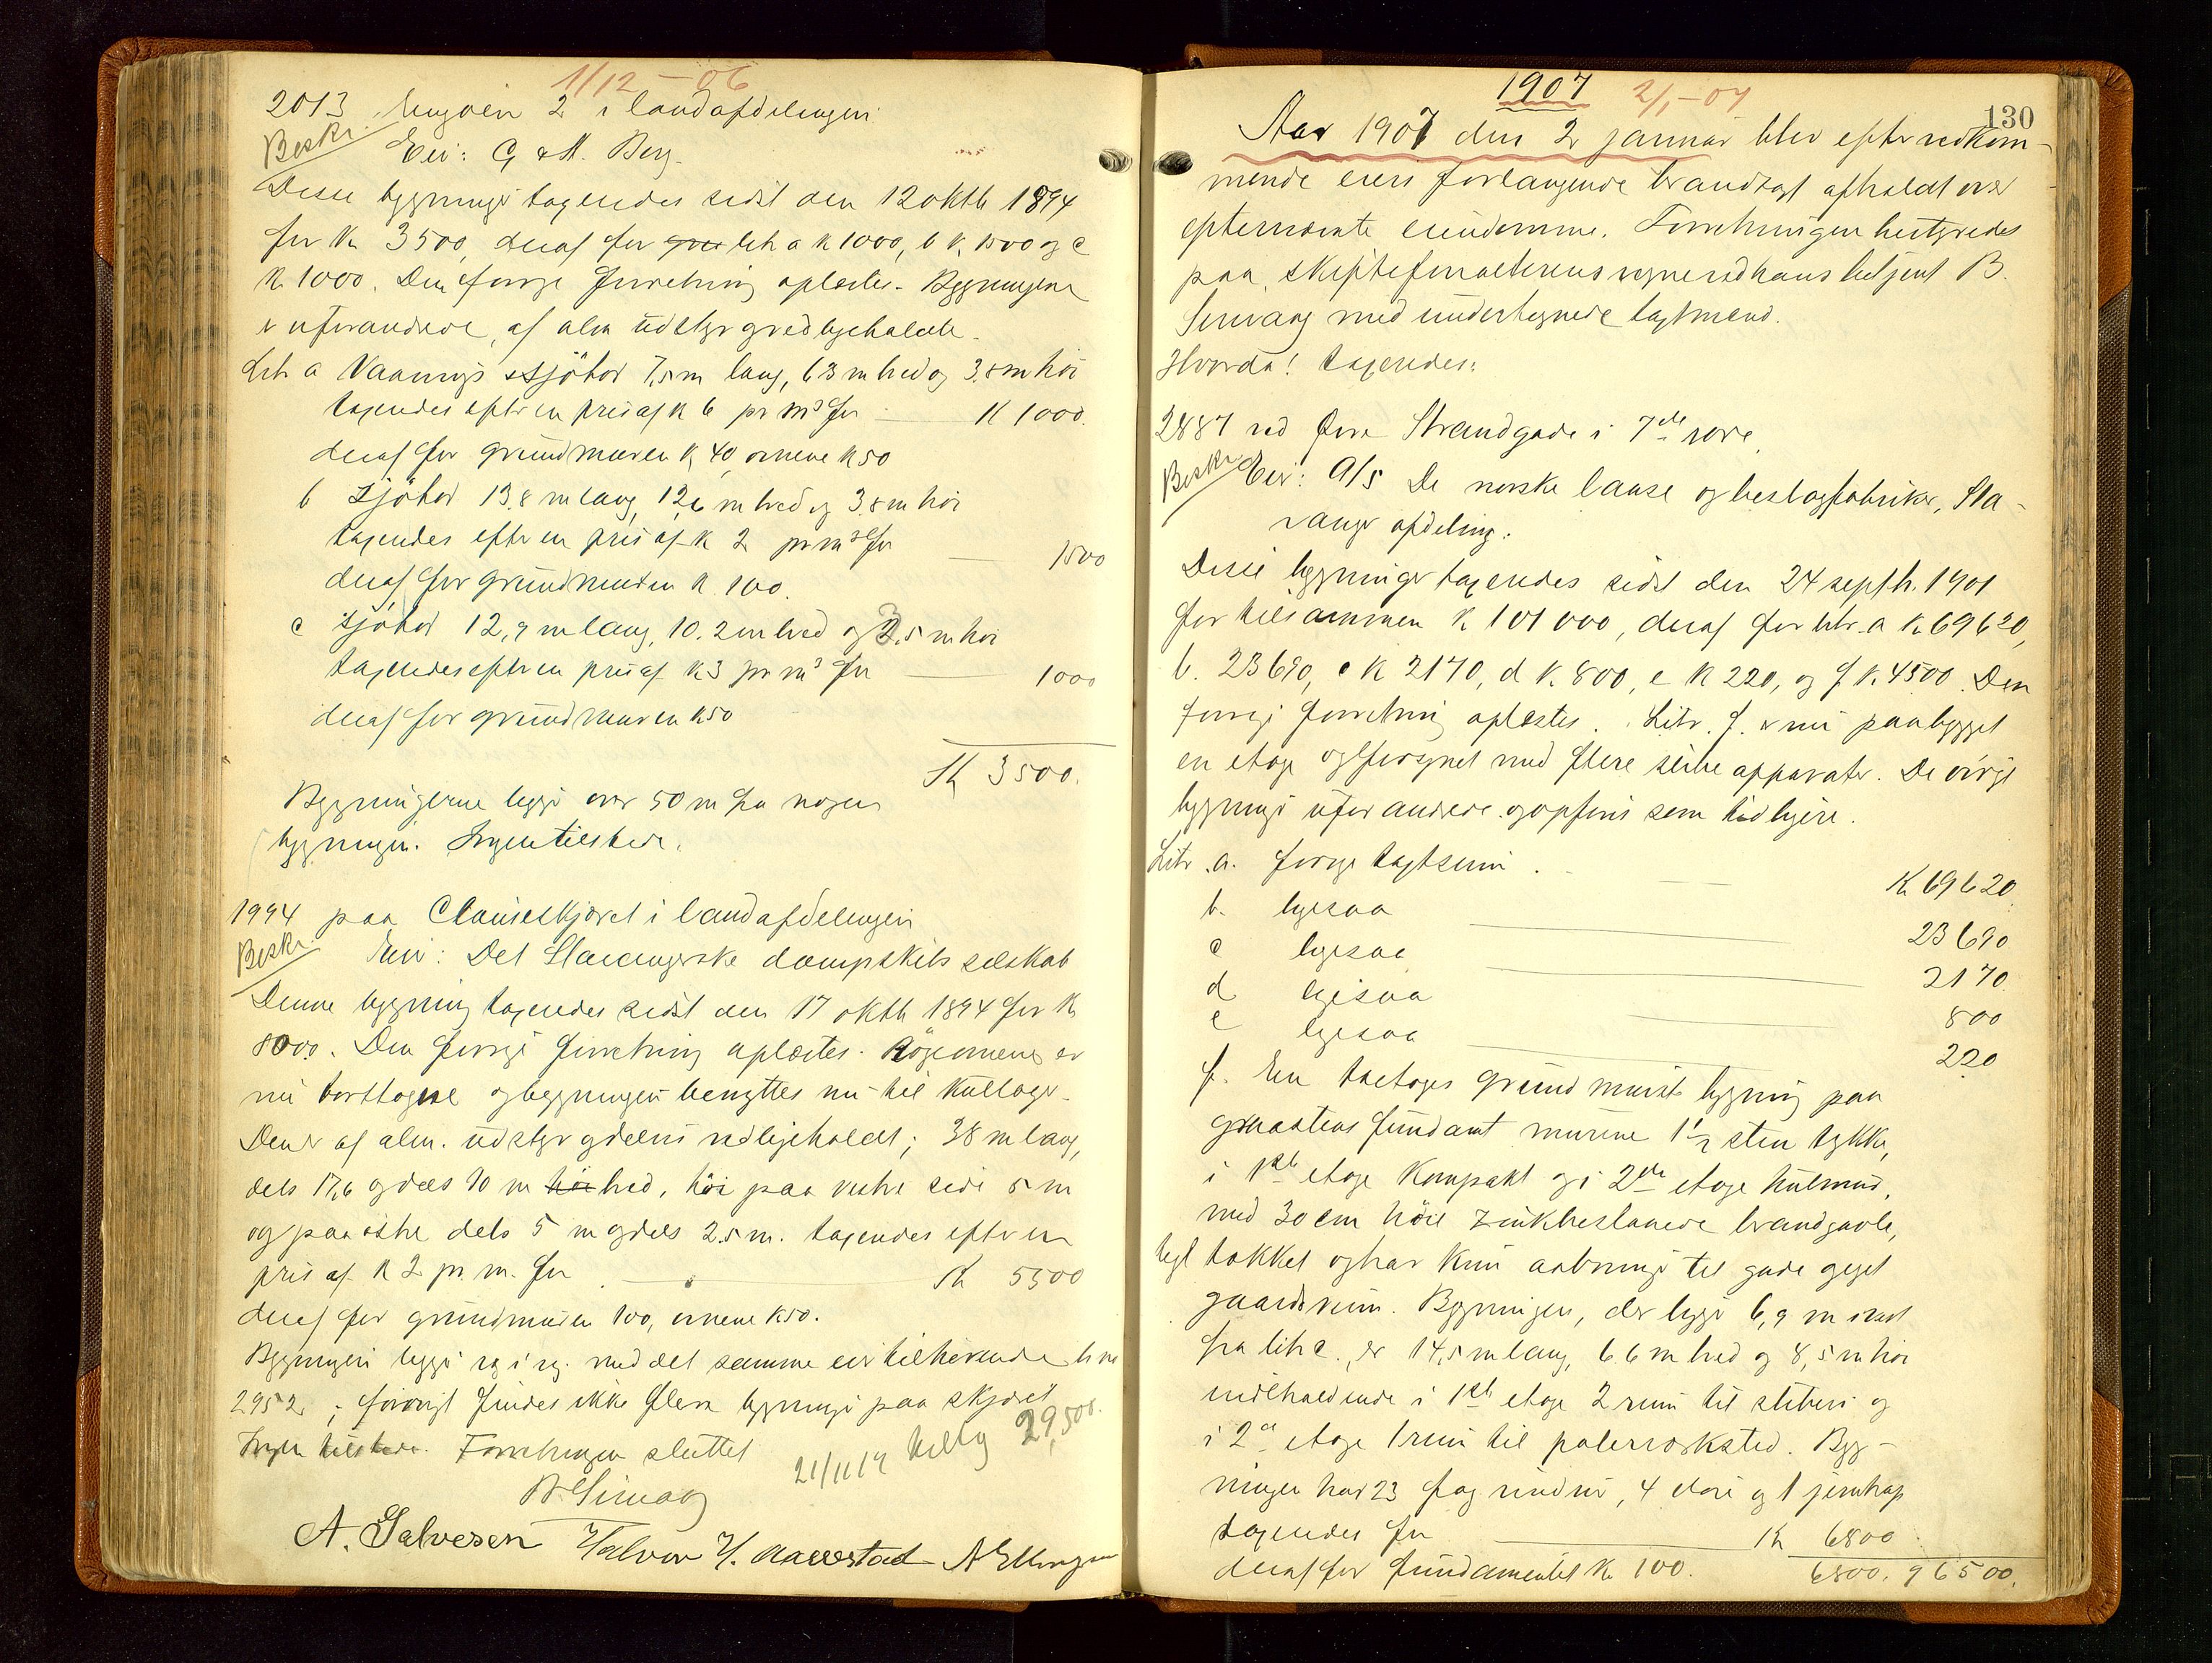 1/12 - 06
2013 Ungøen 2 i landafdelingen
Beskr. Eier: G & M. Berg.
Disse bygninger taxeredes sidst den 12 oktb 1894
for Kr 3500, deraf for litr a Kr 1000, b Kr. 1500 og c
Kr 1000. Den forrige forretning oplæstes. Bygningene
er uforandrede, af alm udstyr og vedligeholdte.
Litr a Vaanings & sjöbod 7,5 m lang, 6 3 m bred og 3.8 m høi
taxeredes efter en pris af K 6 pr m³ for K 1000.
deraf for grundmuren K 40, ovnene K 50
b Sjöbod 13.8 m lang, 12,6 m bred og 3.8 m høi
taxeredes efter en pris af K 2 pr m³ for 1500
deraf for grundmuren K 100.
c Sjöbod 12,9 m lang, 10.2 m bred og 3.5 m høi
taxeredes efter en pris af K 3 pr m³ for 1000
deraf for grundmuren K 50
Kr 3500.
Bygningerne ligger over 50 m fra nogen
bygninger. Ingen tilstede.
1994 paa Clauseskjæret i landafdelingen
Beskr. Eier: Det Stavangerske dampskibsselskab
Denne bygning taxeredes sidst den 17 oktb 1894 for Kr
8000. Den forrige forretning oplæstes. Røgeovnene er
nu borttagne og bygningen benyttes nu til kullager.
Den er af alm. udstyr og delvis vedligeholdt; 38 m lang,
dels 17,6 og dels 10 m høi bred, høi paa vestre side 5 m
og paa østre dels 5 m og dels 2.5 m. taxeredes efter en
pris af K 2 pr. m. for Kr 5500
deraf for grundmuren 100, ovnene K 50.
Bygningen ligger ryg i ryg med det samme eier tilhørende br no
2952; forøvrigt findes ikke flere bygninger paa skjæret
Ingen tilstede. Forretningen sluttet
21/11 14 29,500.
B. Simvang
A. Salvesen Halvor H. Aarrestad A Ellingsen
1907 2/1-07
130
Aar 1907 den 2 januar blev efter vedkom-
mende eiers forlangende brandtaxt afholdt over
efternævnte eiendomme. Forretningen bestyredes
paa skiftefuncterens vegne ved hans betjent B.
Simvang med undertegnede taxtmænd.
Hvorda! taxeredes:
2887 ved Øvre Strandgade i 7de rode
Beskr Eier: A/S De norske laase og beslagfabriker, Sta-
vanger afdeling.
Disse bygninger taxeredes sidst den 24 septb. 1901
for tilsammen K 101 000, deraf for litr. a Kr 69620,
b. 23690, c K 2170, d K. 800, e K 220, og f K. 4500. Den
forrige forretning oplæstes. Litr. f. er nu paabygget
en etage og forsynet med flere slibeapparater. De øvrige
bygninger uforandrede og opføres som tidligere.
Litr. a. forrige taxtsum K 69620
b. ligesaa 23690
c ligesaa 2170
d ligesaa 800
e ligesaa 220
f. En toetages grundmuret bygning paa
graastens fundamt murene 1½ sten tykke,
i 1ste etage kompakt og i 2den etage hulmur,
med 30 cm höie zinkbeslaaede brandgavle,
tegltækket og har kun aabninger til gade og eget
gaardsrum. Bygningen, der ligger 6,9 m vest
fra litr e. er 14,5 m lang, 6.6 m bred og 8,5 m høi
indeholdende i 1ste etage 2 rum til sliberi og
i 2den etage 1 rum til polerværksted. Byg-
ningen har 23 fag vinduer, 4 døre og 1 jerntrap
taxeredes for Kr 6800
deraf for fundamentet Kr 100. 6800. 96500.